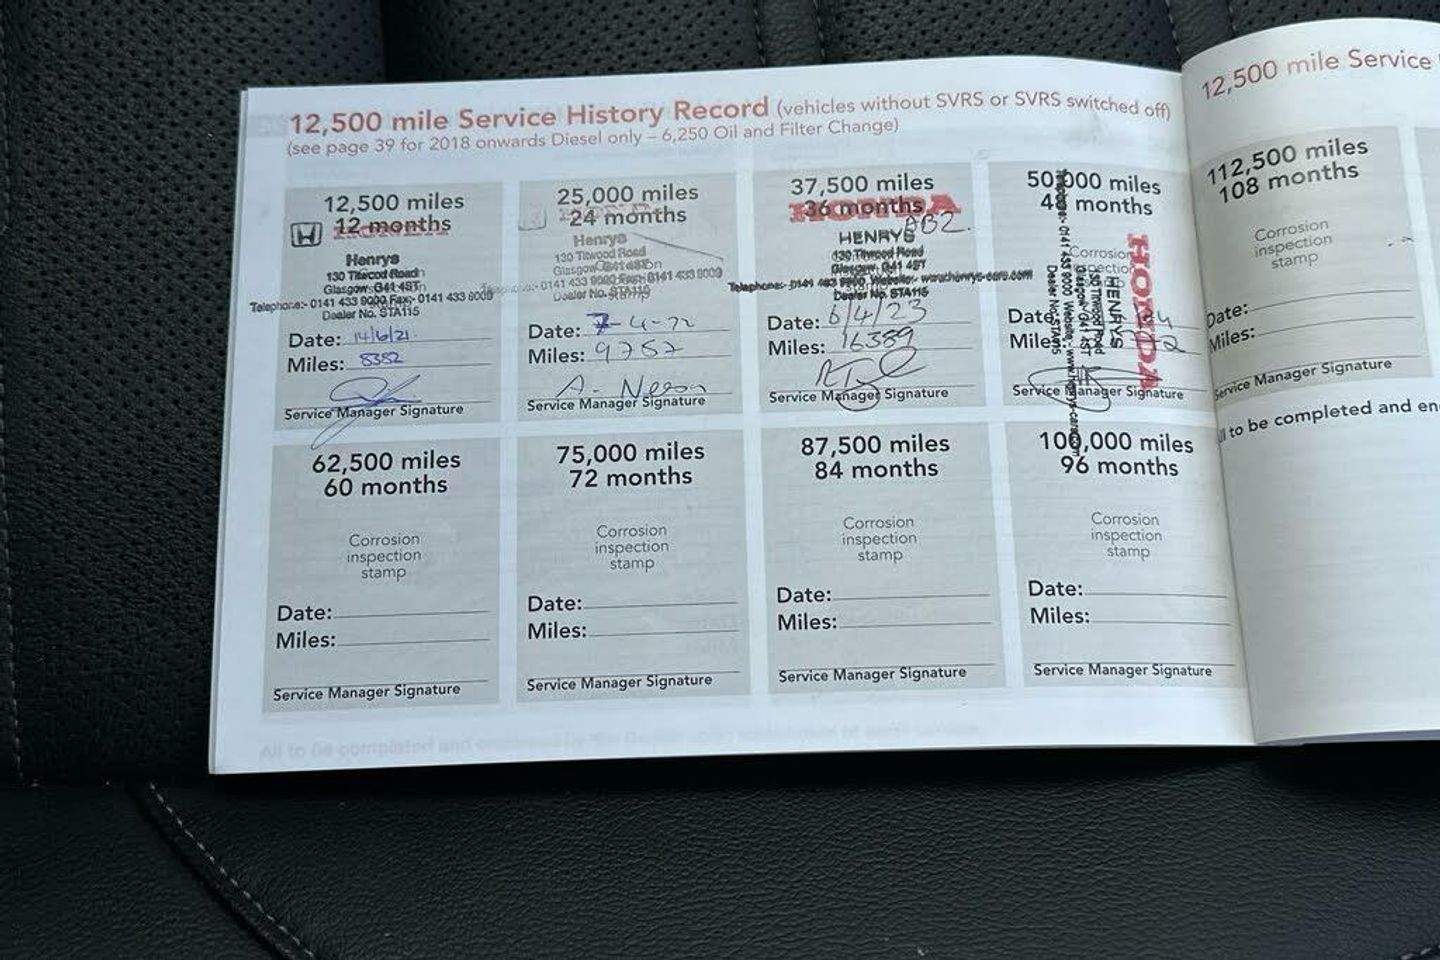 12,500 mile Service History Record (vehicles without SVRS or SVRS switched off)
(see page 39 for 2018 onwards Diesel only – 6,250 Oil and Filter Change)
12,500 miles
12 months
Henrys
130 Titwood Road
Glasgow G41 4ST
Telephone:- 0141 433 9000 Fax:- 0141 433 9009
Dealer No. STA115
Date: 14/6/21
Miles: 8352
Service Manager Signature
25,000 miles
24 months
Henrys
130 Titwood Road
Glasgow G41 4ST
0141 433 9000 Fax:- 0141 433 9009
Dealer No. STA115
Date: 7-4-22
Miles: 9757
Service Manager Signature
37,500 miles
36 months
HONDA
AB2.
HENRYS
130 Titwood Road
Glasgow, G41 4ST
Telephone:- 0141 433 9900 Website:- www.henrys-cars.com
Dealer No. STA115
Date: 6/4/23
Miles: 16389
Service Manager Signature
50,000 miles
48 months
Corrosion
HONDA
HENRYS
Date:
Miles:
Service Manager Signature
62,500 miles
60 months
Corrosion
inspection
stamp
Date:
Miles:
Service Manager Signature
75,000 miles
72 months
Corrosion
inspection
stamp
Date:
Miles:
Service Manager Signature
87,500 miles
84 months
Corrosion
inspection
stamp
Date:
Miles:
Service Manager Signature
100,000 miles
96 months
Corrosion
inspection
stamp
Date:
Miles:
Service Manager Signature
12,500 mile Service
112,500 miles
108 months
Corrosion
inspection
stamp
Date:
Miles:
Service Manager Signature
to be completed and